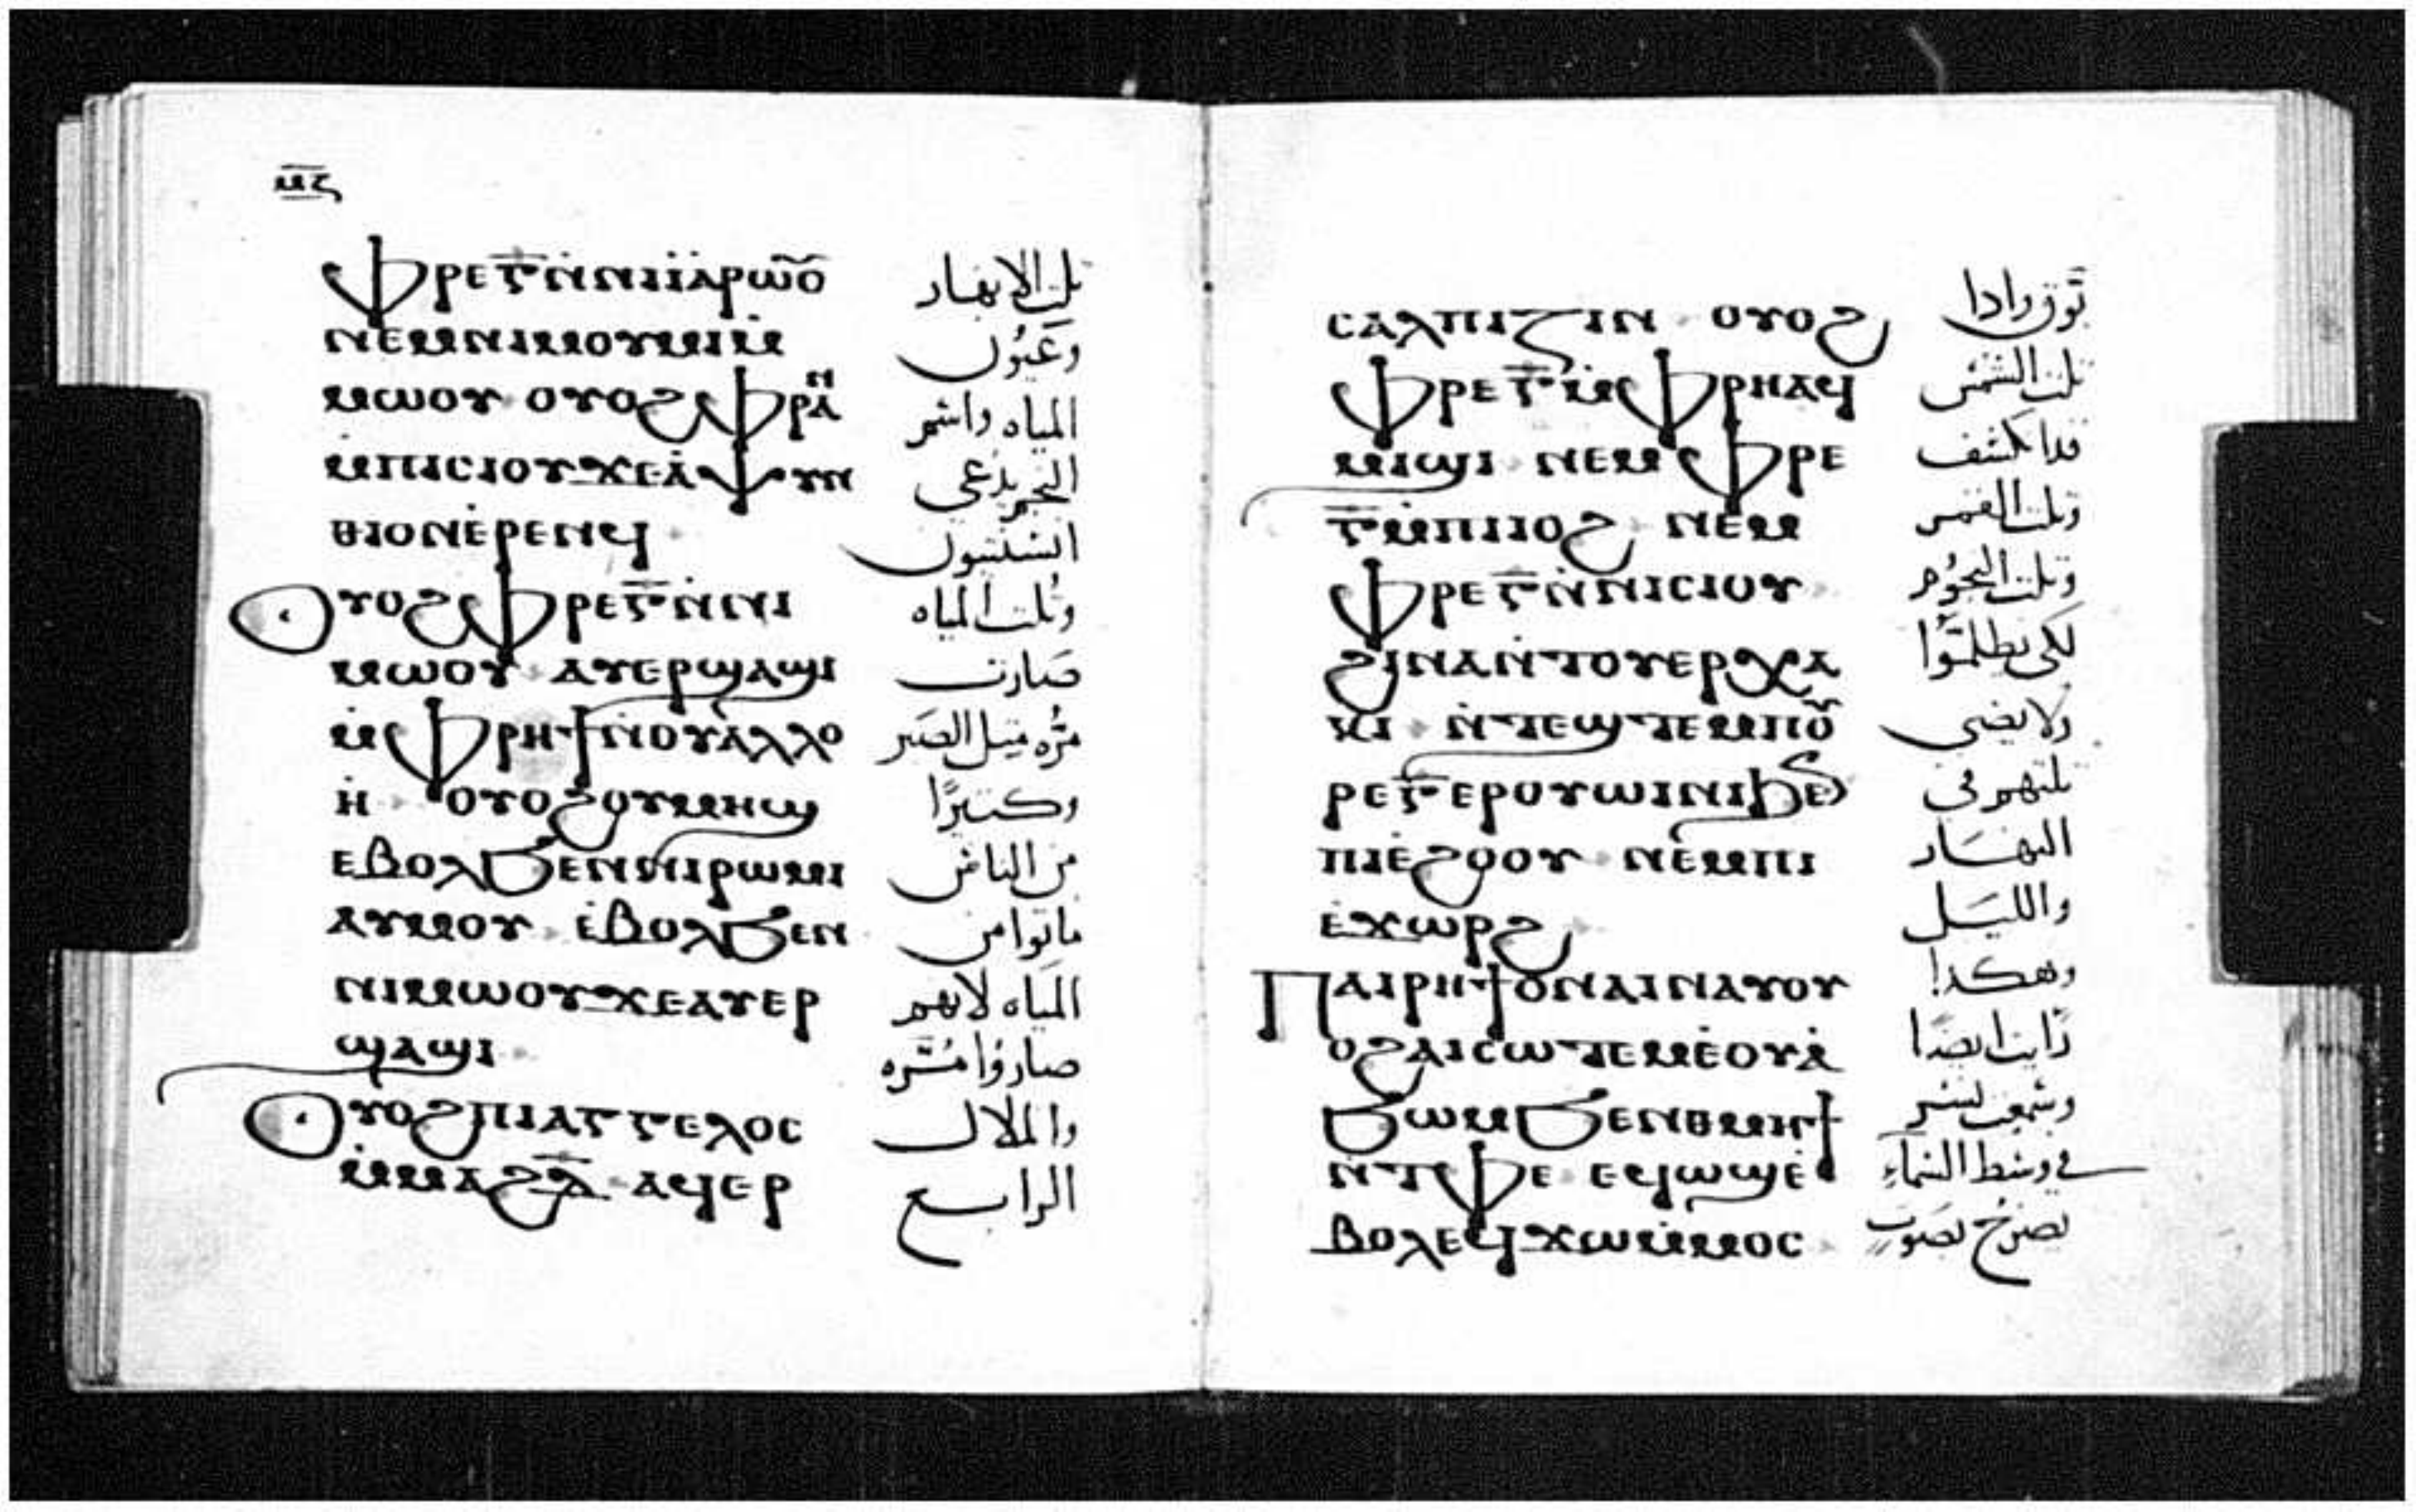 ⲙ̅ⲍ̅
ⲫⲣⲉⲅ̅ⲛ̇ⲛⲓⲓⲁⲣⲱⲟ̅ⲩ̅
ⲛⲉⲙⲛⲓⲙⲟⲩⲙⲓⲙ̇
ⲙⲱⲟⲩ ⲟⲩⲟϩⲫⲣⲁⲛ
ⲙ̇ⲡⲓⲥⲓⲟⲩϫⲉⲁ̇ⲯⲩⲛ
ⲑⲓⲟⲛⲉ̇ⲣⲉⲛϥ
ⲟⲩⲟϩⲫⲣⲉⲅ̅ⲛ̇ⲛⲓ
ⲙⲱⲟⲩ ⲁⲩⲉⲣϣⲁϣⲓ
ⲙ̇ⲫⲣⲏϯⲛ̇ⲟⲩⲁ̇ⲗⲗⲟ
ⲏ̇ ⲟⲩⲟϩⲟⲩⲙⲏϣ
ⲉⲃⲟⲗϧⲉⲛⲛⲓⲣⲱⲙⲓ
ⲁⲩⲙⲟⲩ ⲉ̇ⲃⲟⲗϧⲉⲛ
ⲛⲓⲙⲱⲟⲩϫⲉⲁⲩⲉⲣ
ϣⲁϣⲓ
ⲟⲩⲟϩⲡⲓⲁⲅⲅⲉⲗⲟⲥ
ⲙ̇ⲙⲁϩⲇ̅ ⲁϥⲉⲣ
تلت الانهار
وعيُون
المياه واسْم
النجم يدْعي
افسنتيون
وتُلت المياه
صَارت
مرُّه متل الصَبر
وكتيرًا
من الناسْ
ماتوا من
المياه لانهم
صارُوا مُرَّه
والملاك
الرابع
ⲥⲁⲗⲡⲓⲍⲓⲛ ⲟⲩⲟϩ
ⲫⲣⲉⲅ̅ⲙ̇ⲫⲣⲏⲁϥ
ⲙⲓϣⲓ ⲛⲉⲙⲫⲣⲉ
ⲅ̅ⲙ̇ⲡⲓⲓⲟϩ ⲛⲉⲙ
ⲫⲣⲉⲅ̅ⲛ̇ⲛⲓⲥⲓⲟⲩ
ϩⲓⲛⲁⲛ̇ⲧⲟⲩⲉⲣⲭⲁ
ⲕⲓ ⲛ̇ⲧⲉϣⲧⲉⲙⲡⲟⲩ
ⲣⲉⲅ̅ⲉⲣⲟⲩⲱⲓⲛⲓϧⲉⲛ
ⲡⲓⲉ̇ϩⲟⲟⲩ ⲛⲉⲙⲡⲓ
ⲉ̇ϫⲱⲣϩ
ⲡⲁⲓⲣⲏϯⲟⲛⲁⲓⲛⲁⲩⲟⲩ
ⲟϩⲁⲓⲥⲱⲧⲉⲙⲉ̇ⲟⲩⲁ̇
ϧⲱⲙϧⲉⲛⲑⲙⲏϯ
ⲛ̇ⲧⲫⲉ ⲉϥⲱϣⲉ̇
ⲃⲟⲗⲉϥϫⲱⲙ̇ⲙⲟⲥ
بَوّق واذا
تلت الشمسْ
قد انكسْف
وتلت القمر
وتلت النجوُم
لكي يظلمُوا
ولا يضي
تلتهم في
النهَار
والليَل
وهكدا
رَايت ايضًا
وسْمعت نسْر
في وسْط السْماء
يصرُخ بصَوت